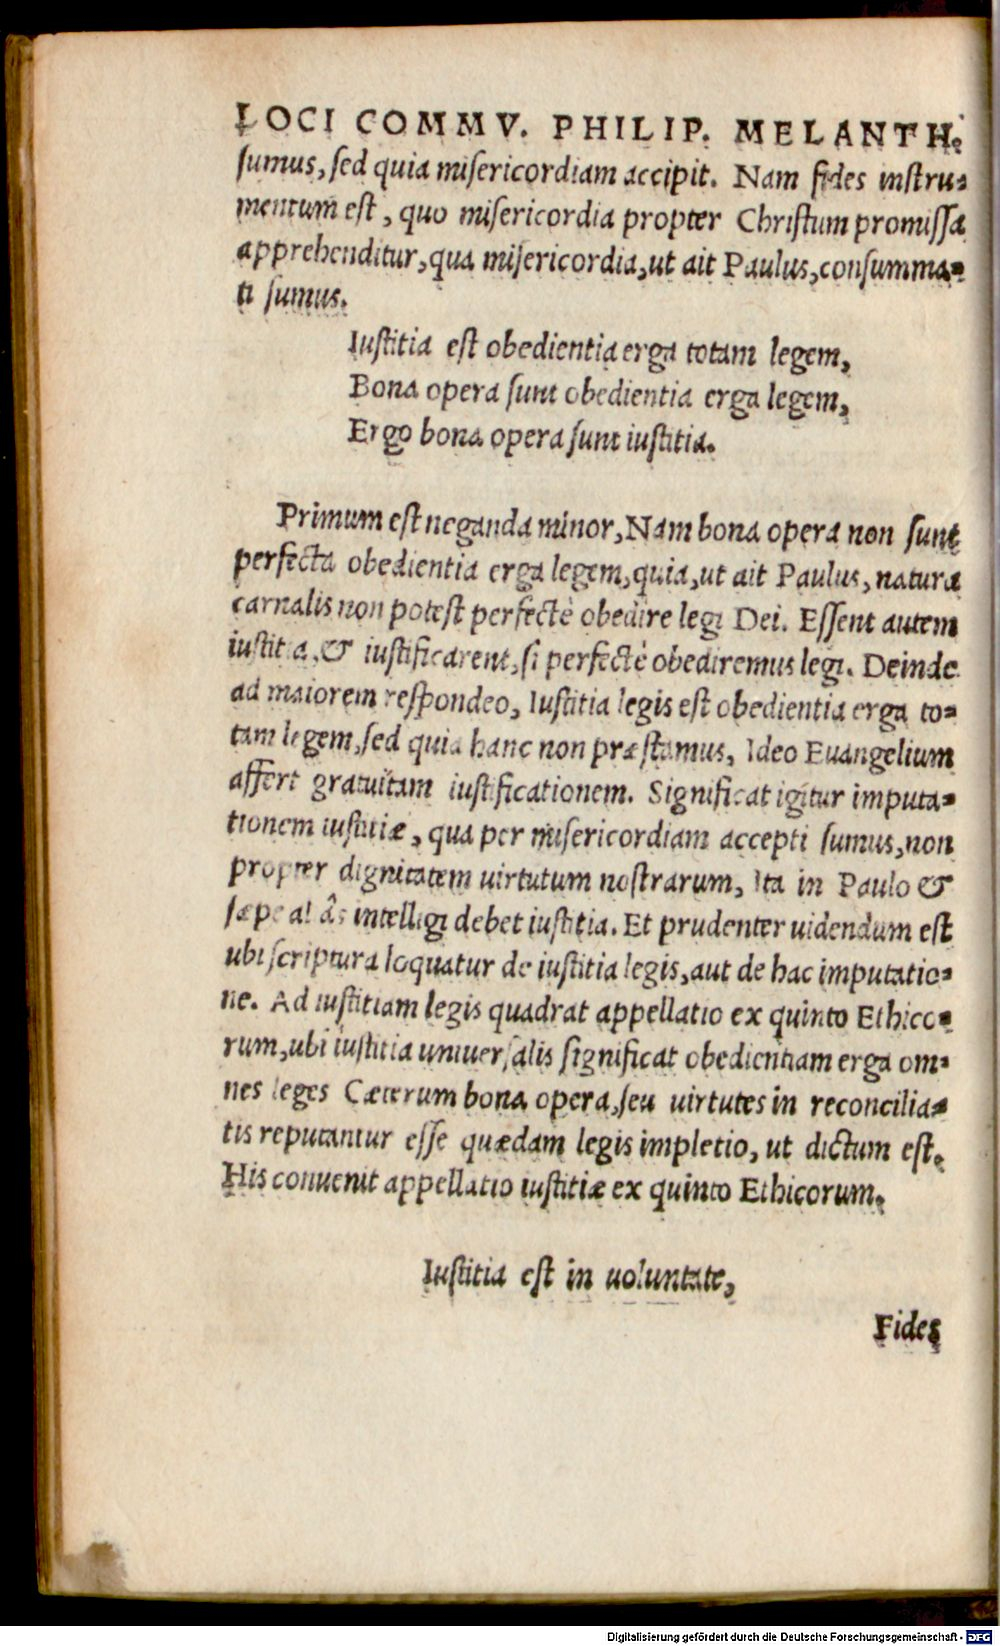 LOCI COMMV. PHILIP. MELANTH.
sumus, sed quia misericordiam accipit. Nam fides instru-
mentum est, quo misericordia propter Christum promissa
apprehenditur, qua misericordia, ut ait Paulus, consumma-
ti sumus.
Iustitia est obedientia erga totam legem,
Bona opera sunt obedientia erga legem,
Ergo bona opera sunt iustitia.
Primum est neganda minor, Nam bona opera non sunt
perfecta obedientia erga legem, quia, ut ait Paulus, natura
carnalis non potest perfectè obedire legi Dei. Essent autem
iustitia, & iustificarent, si perfectè obediremus legi. Deinde
ad maiorem respondeo, Iustitia legis est obedientia erga to-
tam legem, sed quia hanc non præstamus, Ideo Euangelium
affert gratuitam iustificationem. Significat igitur imputa-
tionem iustitiæ, qua per misericordiam accepti sumus, non
propter dignitatem uirtutum nostrarum, Ita in Paulo &
sæpe aliâs intelligi debet iustitia. Et prudenter uidendum est
ubi scriptura loquatur de iustitia legis, aut de hac imputatio-
ne. Ad iustitiam legis quadrat appellatio ex quinto Ethico-
rum, ubi iustitia uniuersalis significat obedientiam erga om-
nes leges Cæterum bona opera, seu uirtutes in reconcilia-
tis reputantur esse quædam legis impletio, ut dictum est.
His conuenit appellatio iustitiæ ex quinto Ethicorum.
Iustitia est in uoluntate,
Fides
Digitalisierung gefördert durch die Deutsche Forschungsgemeinschaft - DFG